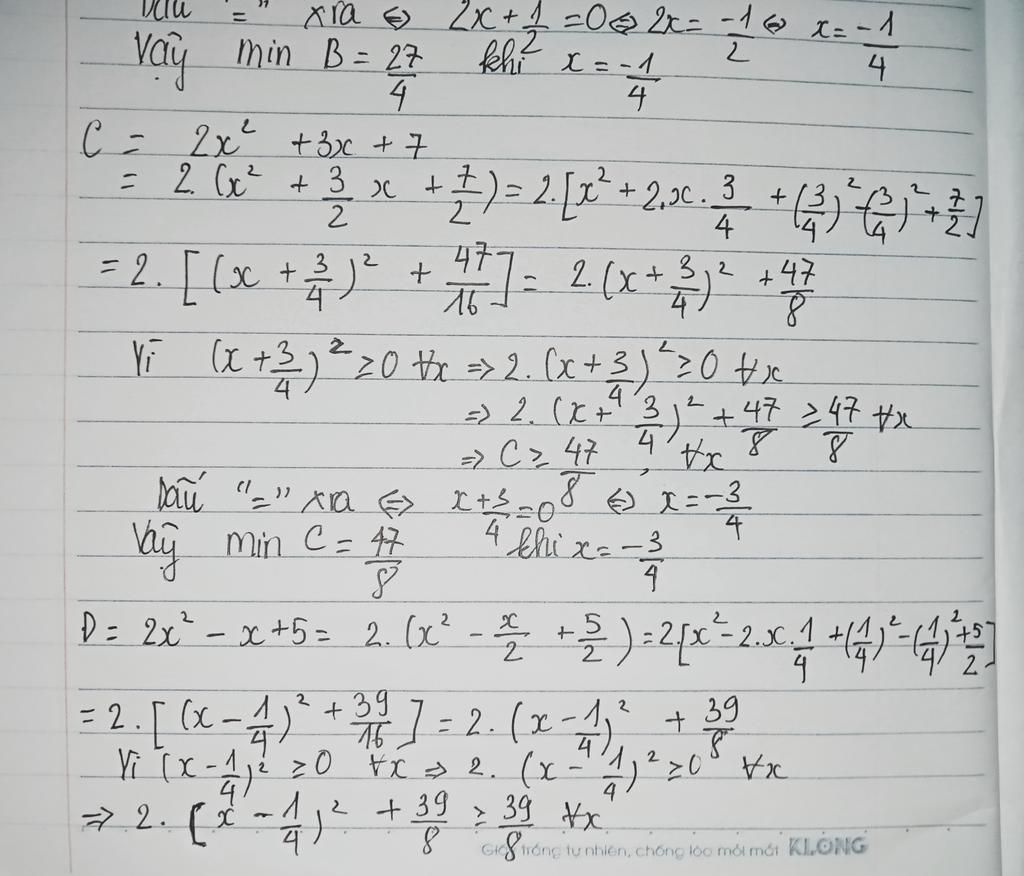 Dấu "=" xra ⇔ 2x + 1/2 = 0 ⇔ 2x = -1/2 ⇔ x = -1/4
Vậy min B = 27/4 khi x = -1/4
C = 2x² + 3x + 7
= 2.(x² + 3/2 x + 7/2) = 2.[x² + 2.x.3/4 + (3/4)² - (3/4)² + 7/2]
= 2.[(x + 3/4)² + 47/16] = 2.(x + 3/4)² + 47/8
Vì (x + 3/4)² ≥ 0 ∀x ⇒ 2.(x + 3/4)² ≥ 0 ∀x
⇒ 2.(x + 3/4)² + 47/8 ≥ 47/8 ∀x
⇒ C ≥ 47/8, ∀x
Dấu "=" xra ⇔ x + 3/4 = 0 ⇔ x = -3/4
Vậy min C = 47/8 khi x = -3/4
D = 2x² - x + 5 = 2.(x² - x/2 + 5/2) = 2[x² - 2.x.1/4 + (1/4)² - (1/4)² + 5/2]
= 2.[(x - 1/4)² + 39/16] = 2.(x - 1/4)² + 39/8
Vì (x - 1/4)² ≥ 0 ∀x ⇒ 2.(x - 1/4)² ≥ 0 ∀x
⇒ 2.(x - 1/4)² + 39/8 ≥ 39/8 ∀x
Giấy trắng tự nhiên, chống lóa mỏi mắt KLONG